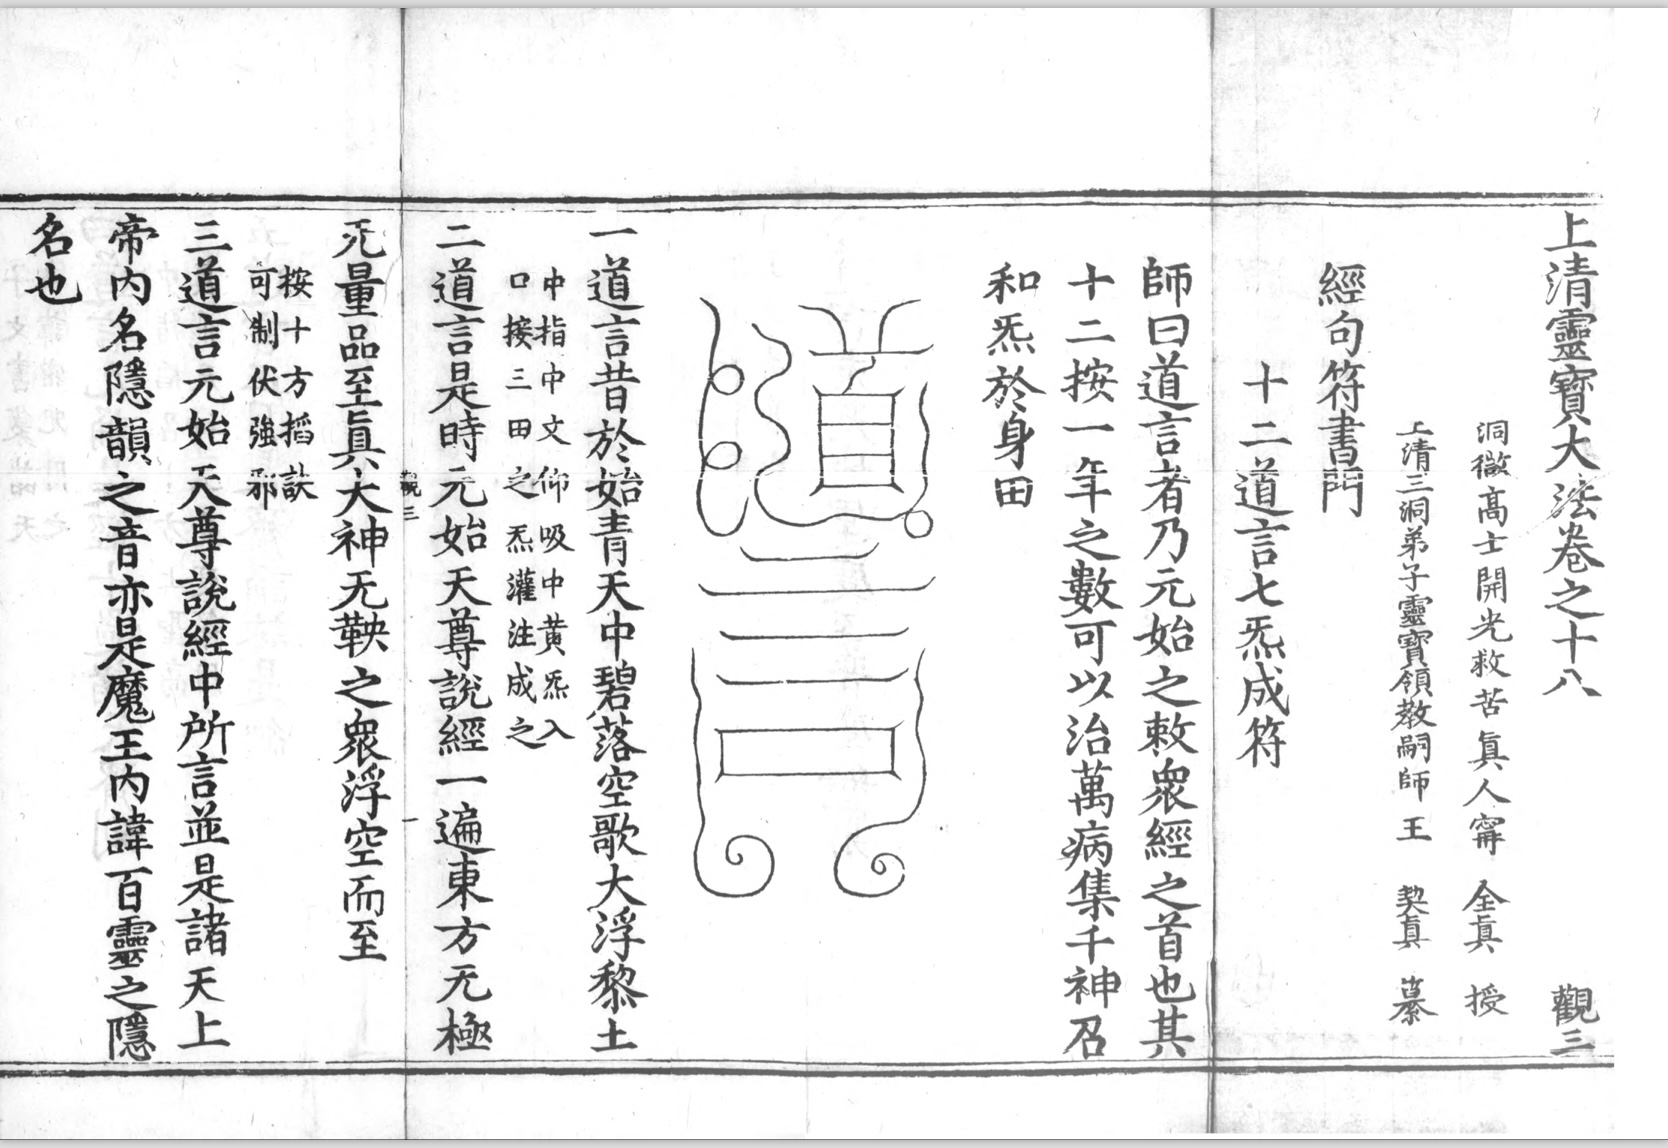 上清靈寳大法卷之十八 觀三
洞微髙士開光救苦眞人甯 全眞 授
上清三洞弟子靈寳領敎嗣師王 契眞 纂
經句符書門
十二道言七炁成符
師曰道言者乃元始之敕衆經之首也其
十二按一年之數可以治萬病集千神召
和炁於身田
一道言昔於始青天中碧落空歌大浮黎土
中指中文仰吸中黄炁入
口接三田之炁灌注成之
二道言是時元始天尊說經一遍東方无極
觀三
无量品至眞大神无鞅之衆浮空而至
按十方搯訣
可制伏強邪
三道言元始天尊說經中所言並是諸天上
帝内名隱韻之音亦是魔王内諱百靈之隱
名也